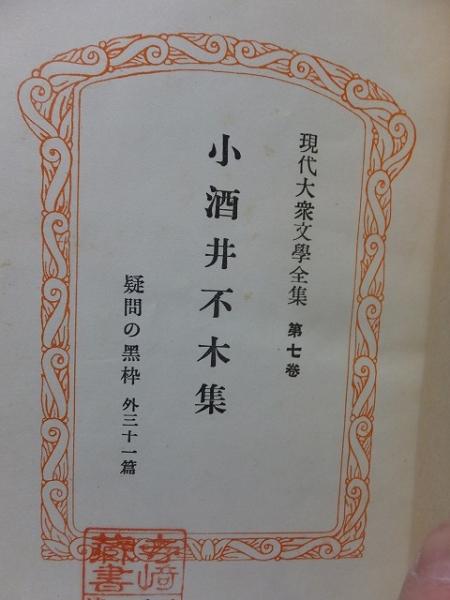 現代大衆文學全集 第七卷
小酒井不木集
疑問の黑枠 外三十一篇
崎
藏書